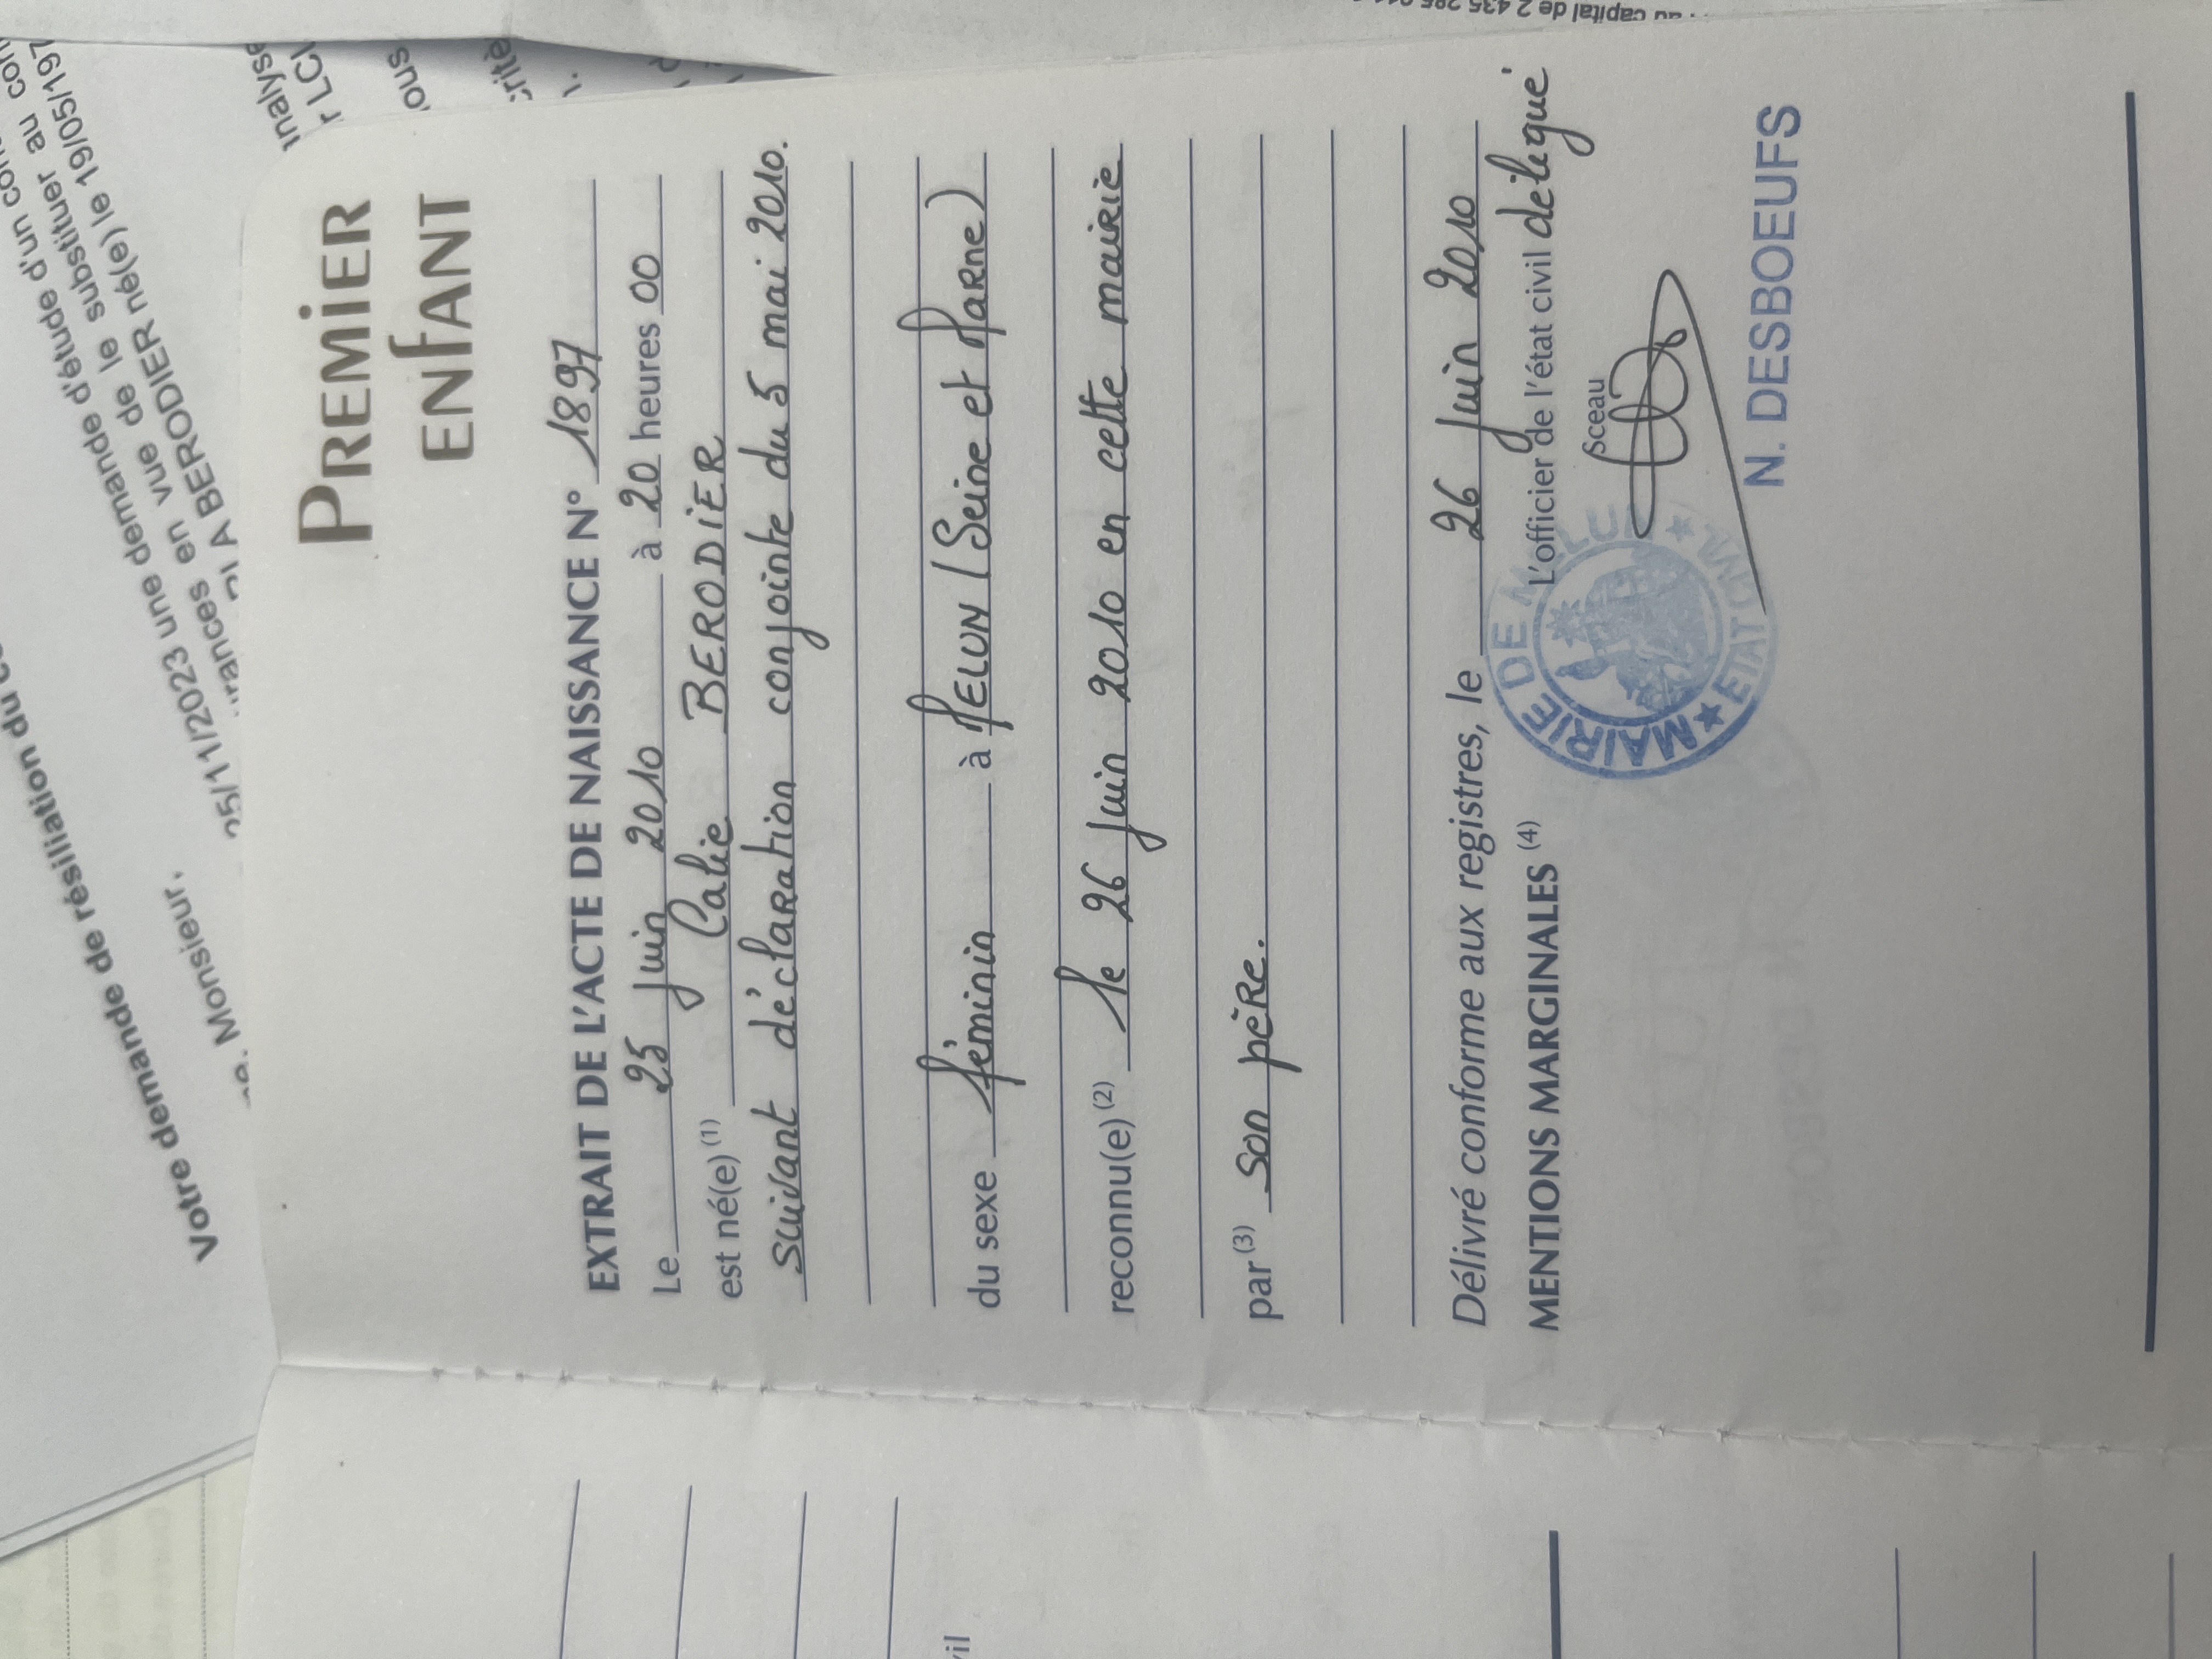 PREMIER
ENFANT
EXTRAIT DE L'ACTE DE NAISSANCE N° 1897
Le 25 Juin 2010 à 20 heures 00
est né(e) (1) Calie BERODIER
suivant déclaration conjointe du 5 mai 2010.
du sexe féminin à MELUN (Seine et Marne)
reconnu(e) (2) le 26 Juin 2010 en cette mairie
par (3) son père.
Délivré conforme aux registres, le 26 Juin 2010
MENTIONS MARGINALES (4)
L'officier de l'état civil délégué
Sceau
MAIRIE DE MELUN
ETAT CIVIL
N. DESBOEUFS
Votre demande de résiliation du
Monsieur,
25/11/2023 une demande d'étude d'un
en vue de le substituer au
A BERODIER né(e) le 19/05/197
LCL
au capital de 2 435 285
vil